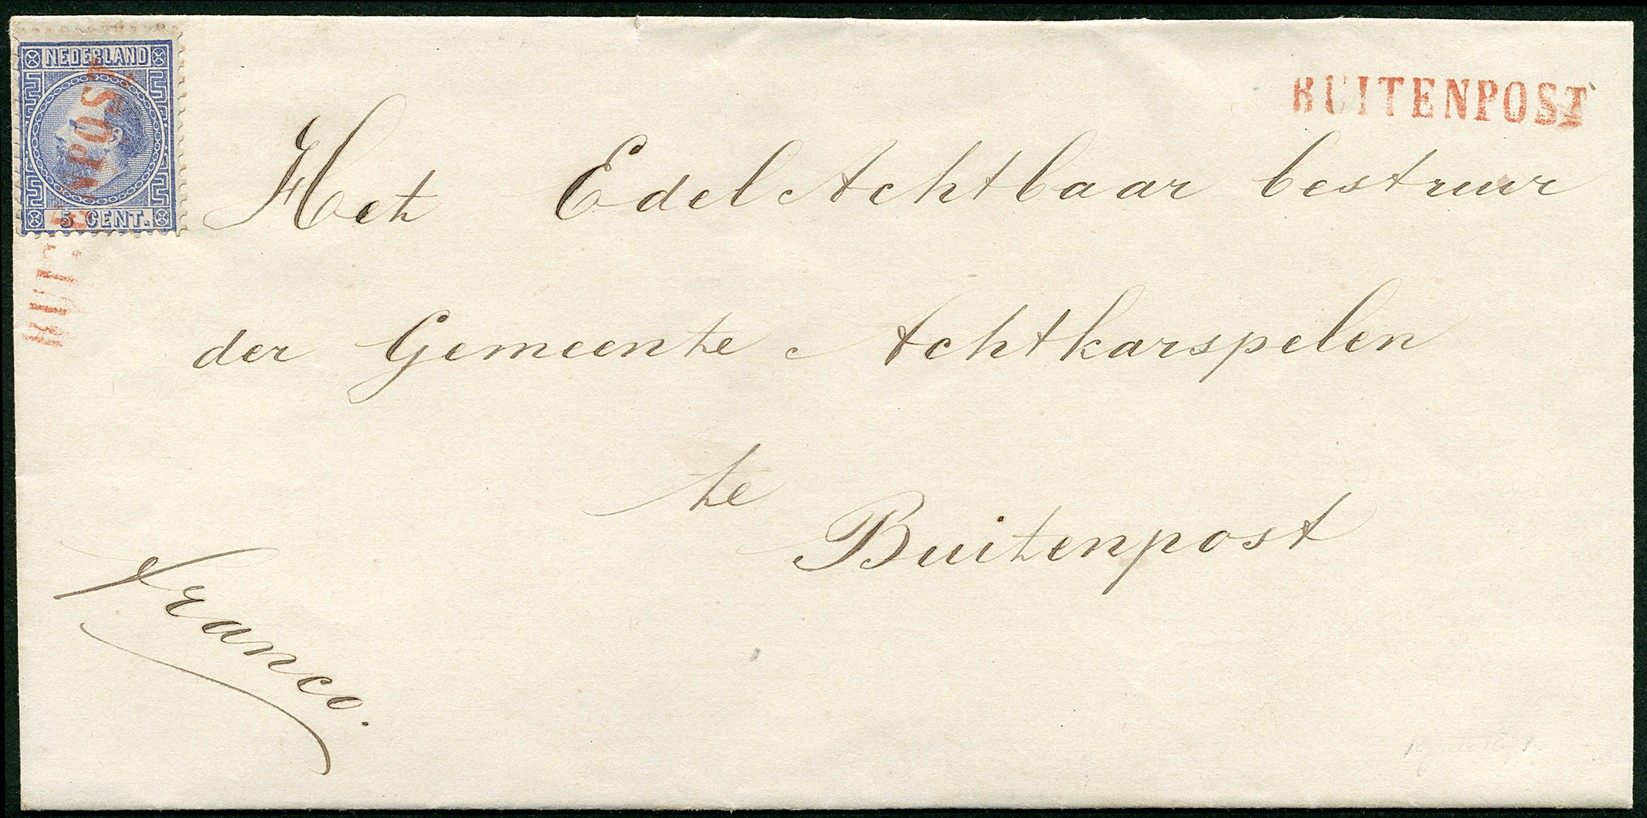 NEDERLAND
5 CENT.
BUITENPOST
BUITENPOST
Het EdelAchtbaar bestuur
der Gemeente Achtkarspelen
te
Buitenpost
franco.